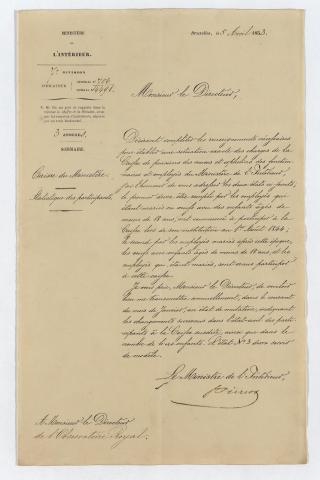 MINISTÈRE
DE
L'INTÉRIEUR.
Bruxelles, le 5 Avril 1853
DIVISION
INDICATEUR
3 ANNEXES.
SOMMAIRE.
Caisse des Veuves etc.
Statistique des participants.
Monsieur le Directeur,
Désirant compléter les renseignements nécessaires
pour établir une situation exacte des charges de la
Caisse de pensions des veuves et orphelins des fonction-
naires et employés du Ministère de l'Intérieur,
j'ai l'honneur de vous adresser les deux états ci-joints;
le premier devra être rempli par les employés qui
étant mariés ou veufs avec des enfants âgés de
moins de 18 ans, ont commencé à participer à la
Caisse lors de son institution au 1er Août 1844;
le second par les employés mariés après cette époque,
les veufs avec enfants âgés de moins de 18 ans, et les
employés qui, étant mariés, sont venus participer
à cette caisse.
Je vous prie, Monsieur le Directeur, de vouloir
bien me transmettre, annuellement, dans le courant
du mois de Janvier, un état de mutation, indiquant
les changements survenus dans l'état-civil des parti-
cipants à la Caisse susdite, ainsi que dans le
nombre de leurs enfants. L'état No 3 devra servir
de modèle.
Le Ministre de l'Intérieur,
A Monsieur le Directeur
de l'Observatoire Royal.